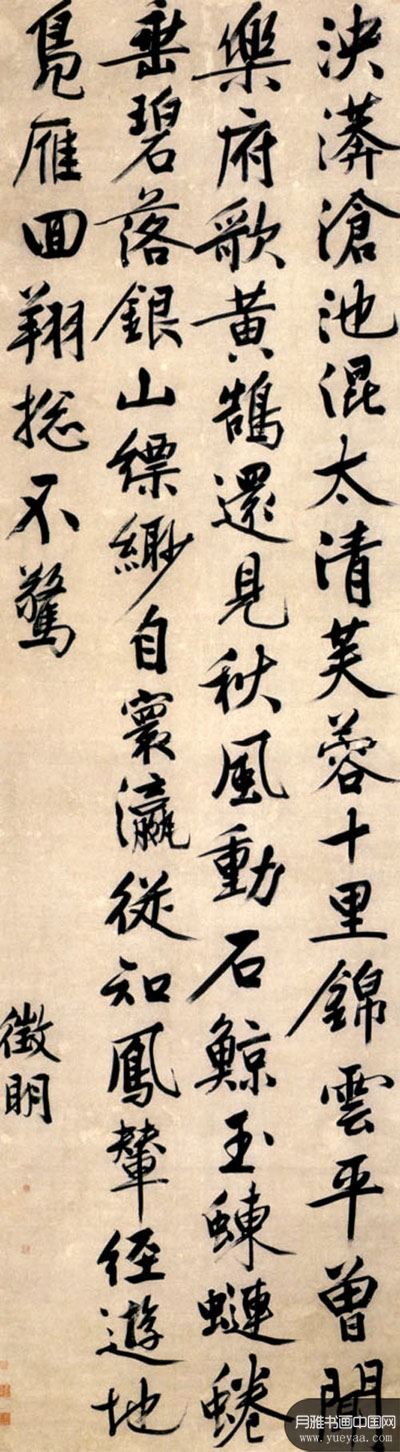 泱漭滄池混太清芙蓉十里錦雲平曾聞
樂府歌黃鵠還見秋風動石鯨玉蝀蜷
垂碧落銀山縹緲自寰瀛從知鳳輦經遊地
鳧雁回翔捴不驚
徵明
月雅书画中国网
www.yueyaa.com